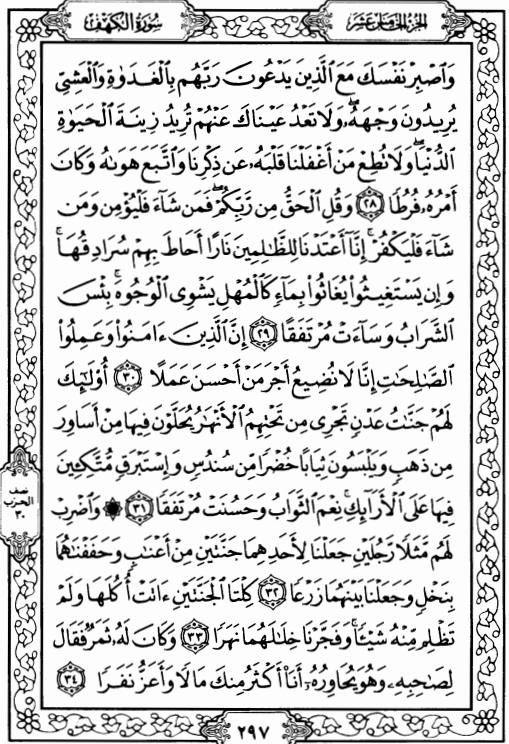 سُورَةُ الكَهْفِ
الجزء الخامس عشر
وَٱصْبِرْ نَفْسَكَ مَعَ ٱلَّذِينَ يَدْعُونَ رَبَّهُم بِٱلْغَدَوٰةِ وَٱلْعَشِىِّ
يُرِيدُونَ وَجْهَهُۥۖ وَلَا تَعْدُ عَيْنَاكَ عَنْهُمْ تُرِيدُ زِينَةَ ٱلْحَيَوٰةِ
ٱلدُّنْيَاۖ وَلَا تُطِعْ مَنْ أَغْفَلْنَا قَلْبَهُۥ عَن ذِكْرِنَا وَٱتَّبَعَ هَوَىٰهُ وَكَانَ
أَمْرُهُۥ فُرُطًا ٢٨ وَقُلِ ٱلْحَقُّ مِن رَّبِّكُمْۖ فَمَن شَآءَ فَلْيُؤْمِن وَمَن
شَآءَ فَلْيَكْفُرْۚ إِنَّآ أَعْتَدْنَا لِلظَّٰلِمِينَ نَارًا أَحَاطَ بِهِمْ سُرَادِقُهَاۚ
وَإِن يَسْتَغِيثُوا۟ يُغَاثُوا۟ بِمَآءٍ كَٱلْمُهْلِ يَشْوِى ٱلْوُجُوهَۚ بِئْسَ
ٱلشَّرَابُ وَسَآءَتْ مُرْتَفَقًا ٢٩ إِنَّ ٱلَّذِينَ ءَامَنُوا۟ وَعَمِلُوا۟
ٱلصَّٰلِحَٰتِ إِنَّا لَا نُضِيعُ أَجْرَ مَنْ أَحْسَنَ عَمَلًا ٣٠ أُو۟لَٰٓئِكَ
لَهُمْ جَنَّٰتُ عَدْنٍ تَجْرِى مِن تَحْتِهِمُ ٱلْأَنْهَٰرُ يُحَلَّوْنَ فِيهَا مِنْ أَسَاوِرَ
مِن ذَهَبٍ وَيَلْبَسُونَ ثِيَابًا خُضْرًا مِّن سُندُسٍ وَإِسْتَبْرَقٍ مُّتَّكِـِٔينَ
فِيهَا عَلَى ٱلْأَرَآئِكِۚ نِعْمَ ٱلثَّوَابُ وَحَسُنَتْ مُرْتَفَقًا ٣١ ۞ وَٱضْرِبْ
لَهُم مَّثَلًا رَّجُلَيْنِ جَعَلْنَا لِأَحَدِهِمَا جَنَّتَيْنِ مِنْ أَعْنَٰبٍ وَحَفَفْنَٰهُمَا
بِنَخْلٍ وَجَعَلْنَا بَيْنَهُمَا زَرْعًا ٣٢ كِلْتَا ٱلْجَنَّتَيْنِ ءَاتَتْ أُكُلَهَا وَلَمْ
تَظْلِم مِّنْهُ شَيْـًٔاۚ وَفَجَّرْنَا خِلَٰلَهُمَا نَهَرًا ٣٣ وَكَانَ لَهُۥ ثَمَرٌ فَقَالَ
لِصَٰحِبِهِۦ وَهُوَ يُحَاوِرُهُۥٓ أَنَا۠ أَكْثَرُ مِنكَ مَالًا وَأَعَزُّ نَفَرًا ٣٤
نصف
الحزب
٣٠
٢٩٧